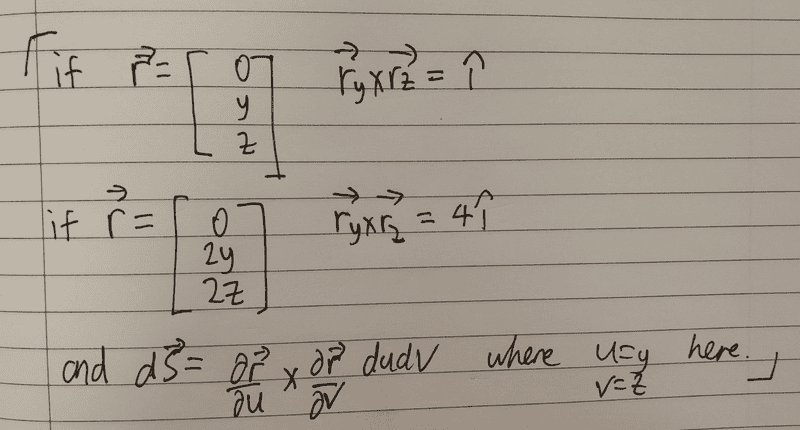 if r⃗ = [ 0 y z ] r⃗y × r⃗z = î
if r⃗ = [ 0 2y 2z ] r⃗y × r⃗z = 4î
and dS⃗ = ∂r⃗/∂u × ∂r⃗/∂v dudv where u=y v=z here.